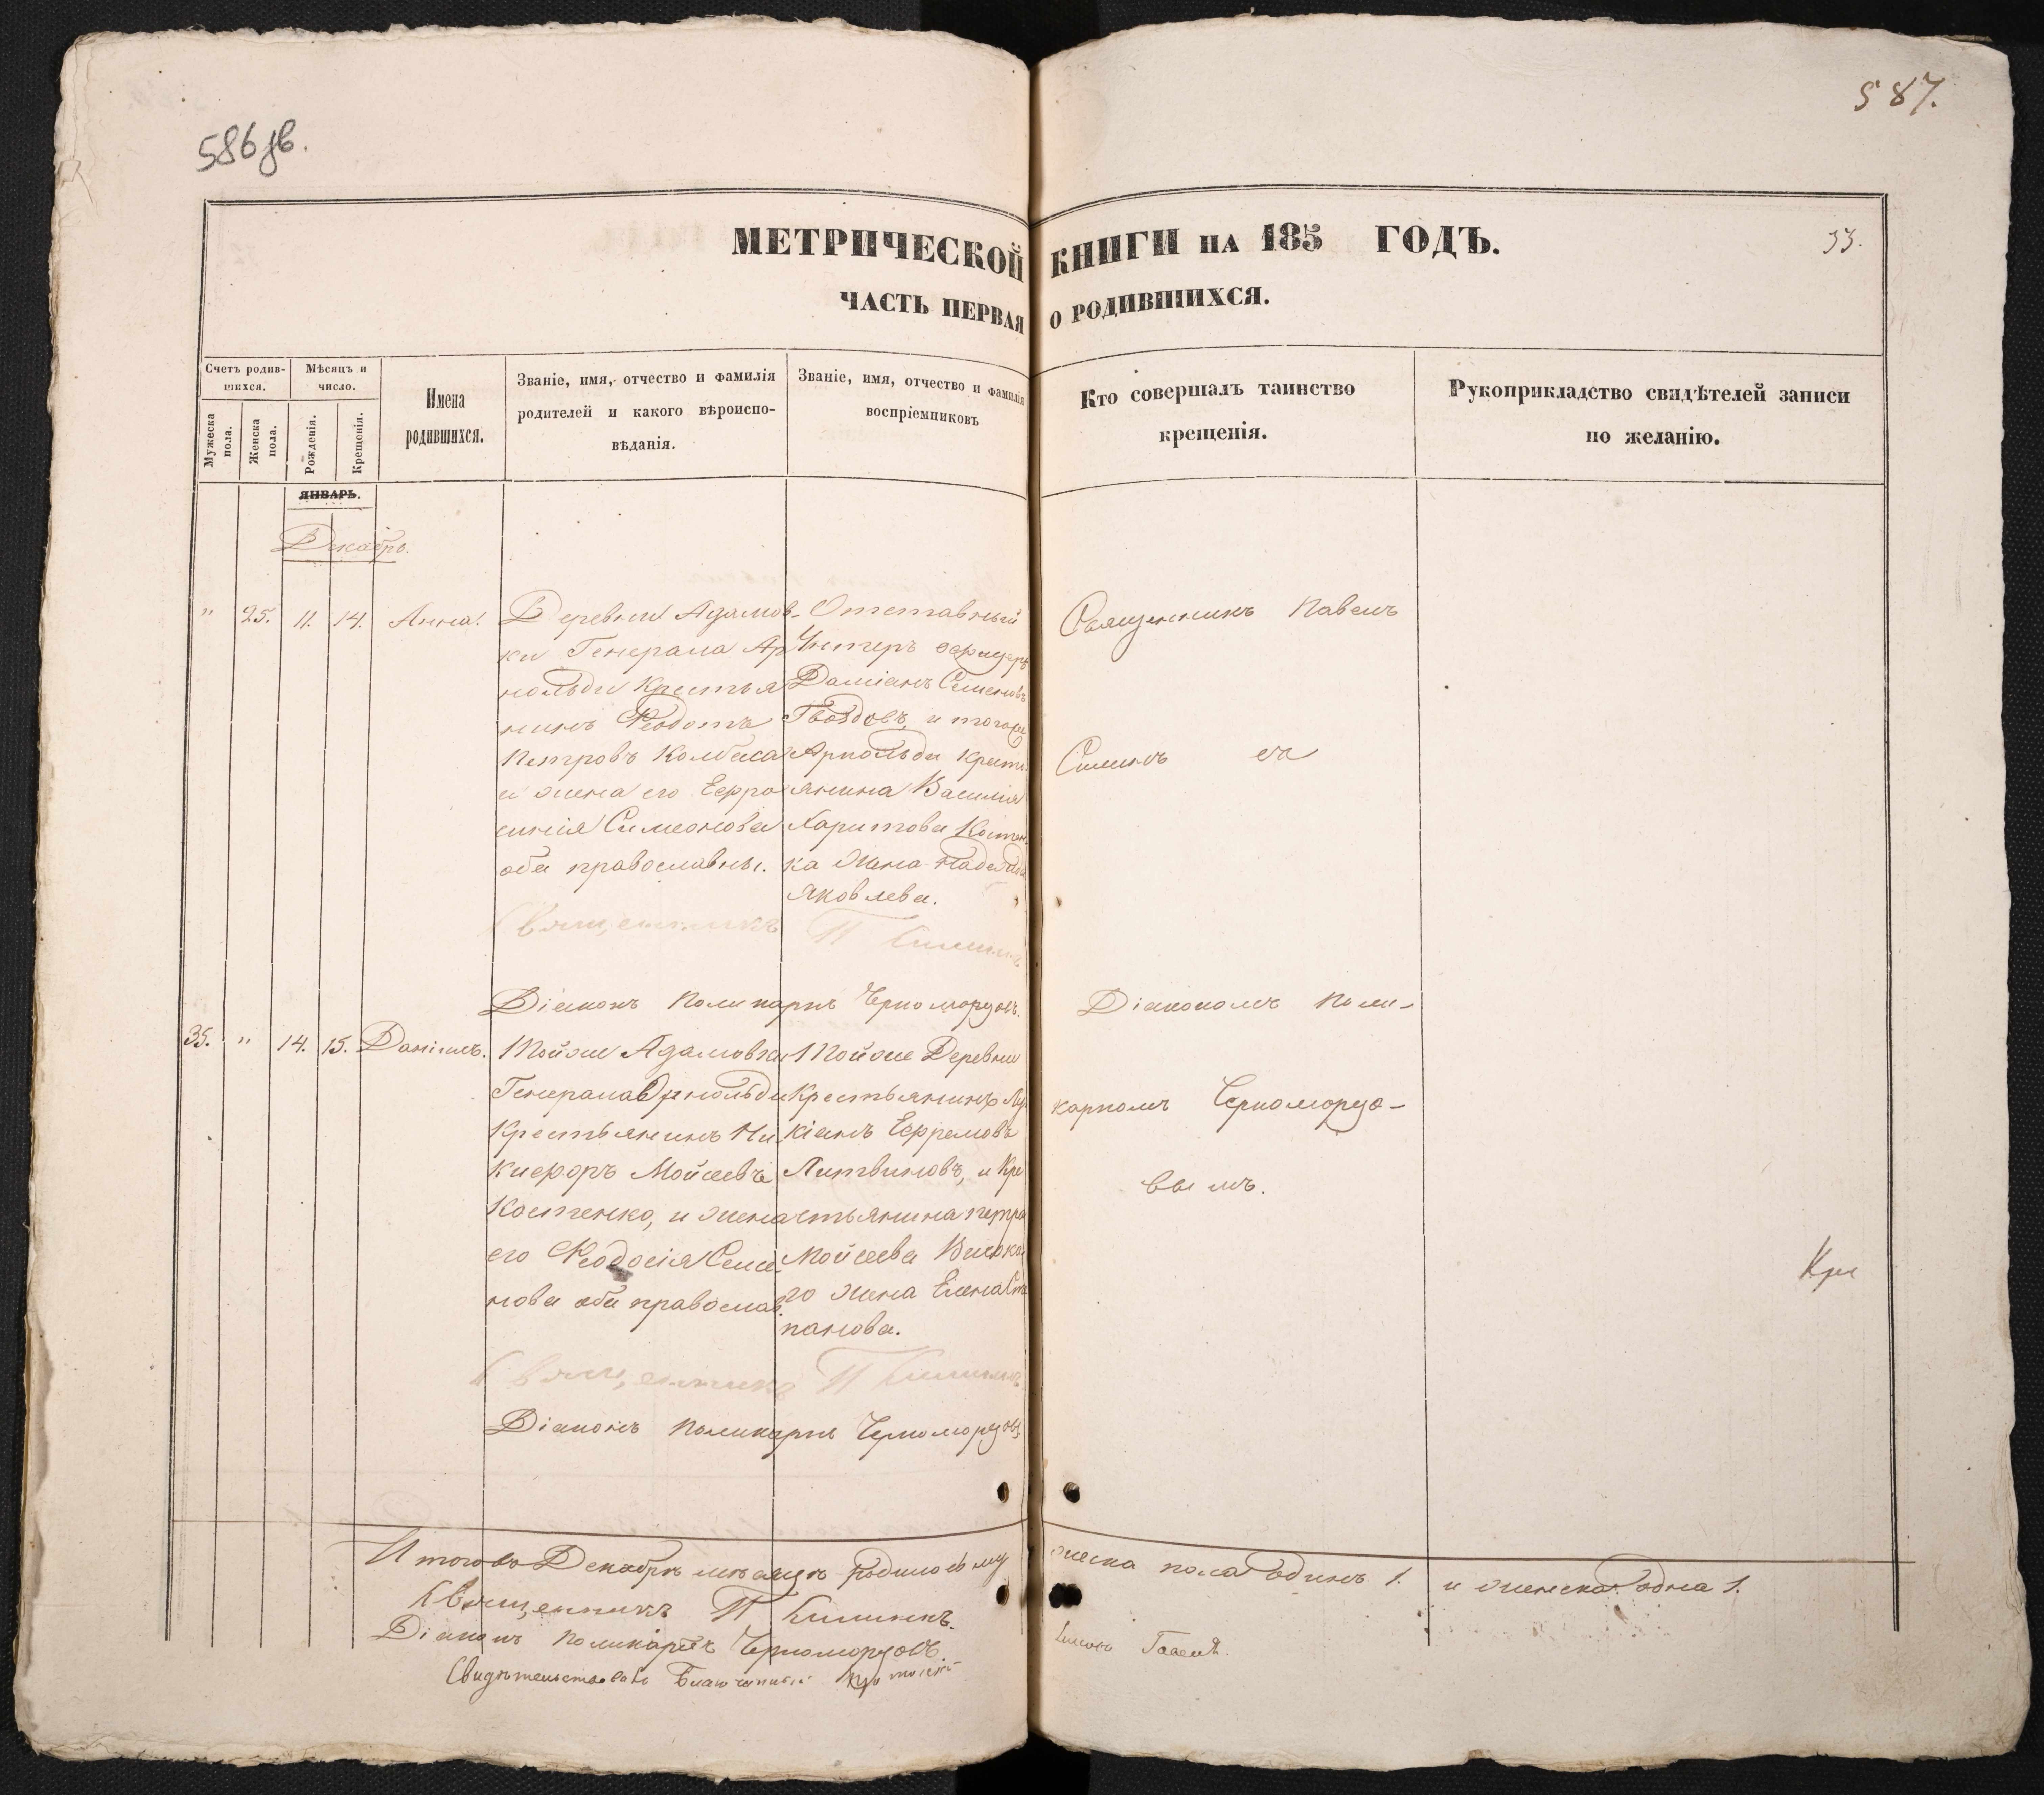 586 об.
587.
МЕТРИЧЕСКОЙ КНИГИ НА 185 ГОДЪ.
33.
ЧАСТЬ ПЕРВАЯ О РОДИВШИХСЯ.
Счетъ родив-
шихся.
Мужеска пола.
Женска пола.
Мѣсяцъ и
число.
Рожденія.
Крещенія.
Имена
родившихся.
Званіе, имя, отчество и фамилія
родителей и какого вѣроиспо-
вѣданія.
Званіе, имя, отчество и фамилія
воспріемниковъ
Кто совершалъ таинство
крещенія.
Рукоприкладство свидѣтелей записи
по желанію.
ЯНВАРЬ.
Декабрь.
" 25. 11. 14. Анна.
Деревни Адамов-
ки Генерала Ар
нольди Крестья
нинъ Ѳеодотъ
Петровъ Колбаса
и жена его Ефро
синія Симеонова
оба православны.
Отставный
Унтеръ офицеръ
Даміанъ Семеновъ
Гвоздовъ, и тогоже
Арнольди крест
янина Василія
Харитова Костен
ка жена Надежда
Яковлева.
Священникъ Павелъ
Священникъ П
Діаконъ Поликарпъ Черноморцовъ.
35. " 14. 15. Даніилъ.
Тойже Адамовки
Генерала Арнольди
Крестьянинъ Ни
кифоръ Мойсеевъ
Костенко, и жена
его Ѳеодосія Семе
нова оба православ.
Тойже Деревни
Крестьянинъ Лу
кіанъ Ефремовъ
Литвиновъ, и Кре
стьянина Петра
Мойсеева Високо
го жена Елена Сте
панова.
Діакономъ Поли-
карпомъ Черноморцо-
вымъ.
Священникъ П
Діаконъ Поликарпъ Черноморцовъ
Итого въ Декабрѣ мѣсяцѣ родилось му
жеска пола одинъ 1. и женска одна 1.
Священникъ П
Діаконъ Поликарпъ Черноморцовъ.
Свидѣтельствовалъ Благочинный